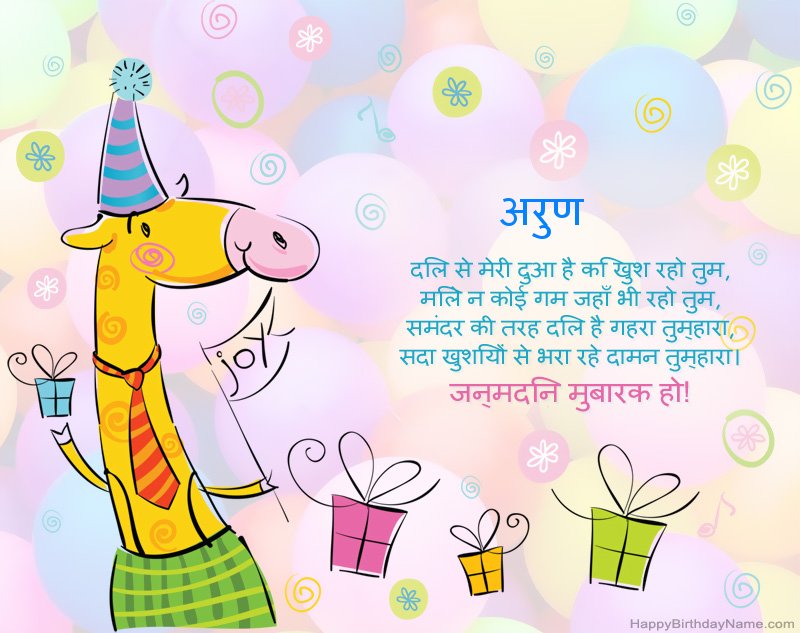 अरुण
दिल से मेरी दुआ है कि खुश रहो तुम,
मिले न कोई गम जहाँ भी रहो तुम,
समंदर की तरह दिल है गहरा तुम्हारा,
सदा खुशियों से भरा रहे दामन तुम्हारा।
जन्मदिन मुबारक हो!
joy
HappyBirthdayName.com